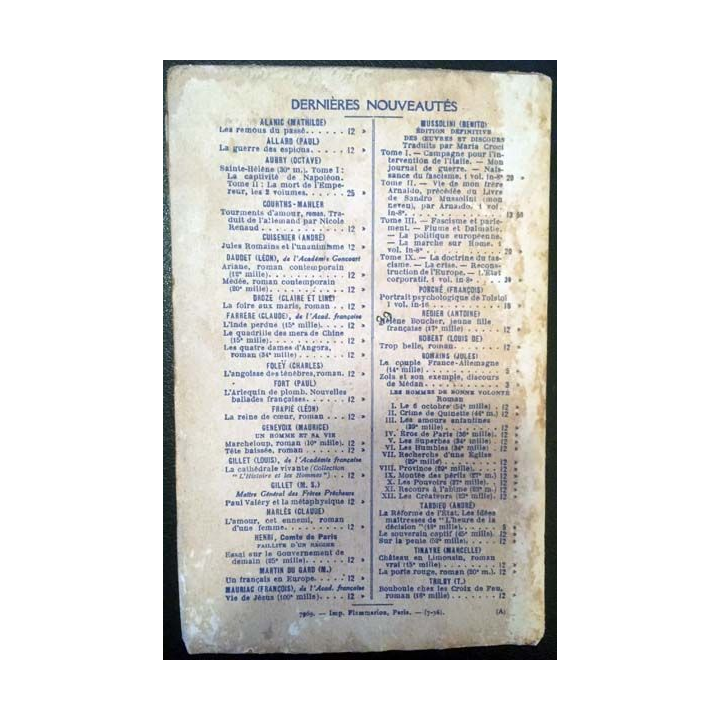 DERNIÈRES NOUVEAUTÉS
ALANIC (MATHILDE)
Les remous du passé...... 12 »
ALLARD (PAUL)
La guerre des espions..... 12 »
AUBRY (OCTAVE)
Sainte-Hélène (30e m.). Tome I :
La captivité de Napoléon.
Tome II : La mort de l'Empe-
reur, les 2 volumes...... 25 »
COURTHS-MAHLER
Tourments d'amour, roman. Tra-
duit de l'allemand par Nicole
Renaud ............ 12 »
CUISENIER (ANDRÉ)
Jules Romains et l'unanimisme 12 »
DAUDET (LÉON), de l'Académie Goncourt
Ariane, roman contemporain
(12e mille)............ 12 »
Médée, roman contemporain
(20e mille)............ 12 »
DROZE (CLAIRE ET LINE)
La foire aux maris, roman... 12 »
FARRÈRE (CLAUDE), de l'Acad. française
L'Inde perdue (15e mille).... 12 »
Le quadrille des mers de Chine
(15e mille)............ 12 »
Les quatre dames d'Angora,
roman (34e mille)....... 12 »
FOLEŸ (CHARLES)
L'angoisse des ténèbres, roman. 12 »
FORT (PAUL)
L'Arlequin de plomb. Nouvelles
ballades françaises........ 12 »
FRAPIÉ (LÉON)
La reine de cœur, roman ... 12 »
GENEVOIX (MAURICE)
UN HOMME ET SA VIE
Marcheloup, roman (10e mille). 12 »
Tête baissée, roman ...... 12 »
GILLET (LOUIS), de l'Académie française
La cathédrale vivante (Collection
"L'Histoire et les Hommes").. 12 »
GILLET (M. S.)
Maître Général des Frères Prêcheurs
Paul Valéry et la métaphysique 12 »
MARLÈS (CLAUDE)
L'amour, cet ennemi, roman
d'une femme.......... 12 »
HENRI, Comte de Paris
FAILLITE D'UN RÉGIME
Essai sur le Gouvernement de
demain (25e mille)....... 12 »
MARTIN DU GARD (M.)
Un français en Europe..... 12 »
MAURIAC (FRANÇOIS), de l'Acad. française
Vie de Jésus (100e mille) ... 12 »
MUSSOLINI (BENITO)
ÉDITION DÉFINITIVE
DES ŒUVRES ET DISCOURS
Traduits par Maria Croci
Tome I. — Campagne pour l'in-
tervention de l'Italie. — Mon
journal de guerre. — Nais-
sance du fascisme. 1 vol. in-8° 20 »
Tome II. — Vie de mon frère
Arnaldo, précédée du Livre
de Sandro Mussolini (mon
neveu), par Arnaldo. 1 vol.
in-8°..............
Tome III. — Fascisme et parle-
ment. — Fiume et Dalmatie.
— La politique européenne.
— La marche sur Rome. 1
vol. in-8°............ 20 »
Tome IX. — La doctrine du fas-
cisme. — La crise. — Recons-
truction de l'Europe. — L'État
corporatif. 1 vol. in-8°....
PORCHÉ (FRANÇOIS)
Portrait psychologique de Tolstoï
1 vol. in-16........... 15 »
REDIER (ANTOINE)
Hélène Boucher, jeune fille
française (17e mille)...... 12 »
ROBERT (LOUIS DE)
Trop belle, roman....... 12 »
ROMAINS (JULES)
Le couple France-Allemagne
(14e mille)............ 5 »
Zola et son exemple, discours
de Médan............ 3 »
LES HOMMES DE BONNE VOLONTÉ
Roman
I. Le 6 octobre (54e mille) . 12 »
II. Crime de Quinette (44e m.) 12 »
III. Les amours enfantines
(39e mille)......... 12 »
IV. Éros de Paris (36e mille). 12 »
V. Les Superbes (34e mille) . 12 »
VI. Les Humbles (34e mille) . 12 »
VII. Recherche d'une Église
(29e mille)......... 12 »
VIII. Province (29e mille).... 12 »
IX. Montée des périls (27e m.) 12 »
X. Les Pouvoirs (27e mille). 12 »
XI. Recours à l'abîme (23e m.) 12 »
XII. Les Créateurs (23e mille). 12 »
TARDIEU (ANDRÉ)
La Réforme de l'État. Les idées
maîtresses de "L'heure de la
décision" (49e mille)......
Le souverain captif (45e mille). 12 »
Sur la pente (52e mille)..... 12 »
TINAYRE (MARCELLE)
Château en Limousin, roman
vrai (15e mille)......... 12 »
La porte rouge, roman (20e m.). 12 »
TRILBY (T.)
Bouboule chez les Croix de Feu,
roman (16e mille)....... 12 »
7989. — Imp. Flammarion, Paris. — (7-36). (A)